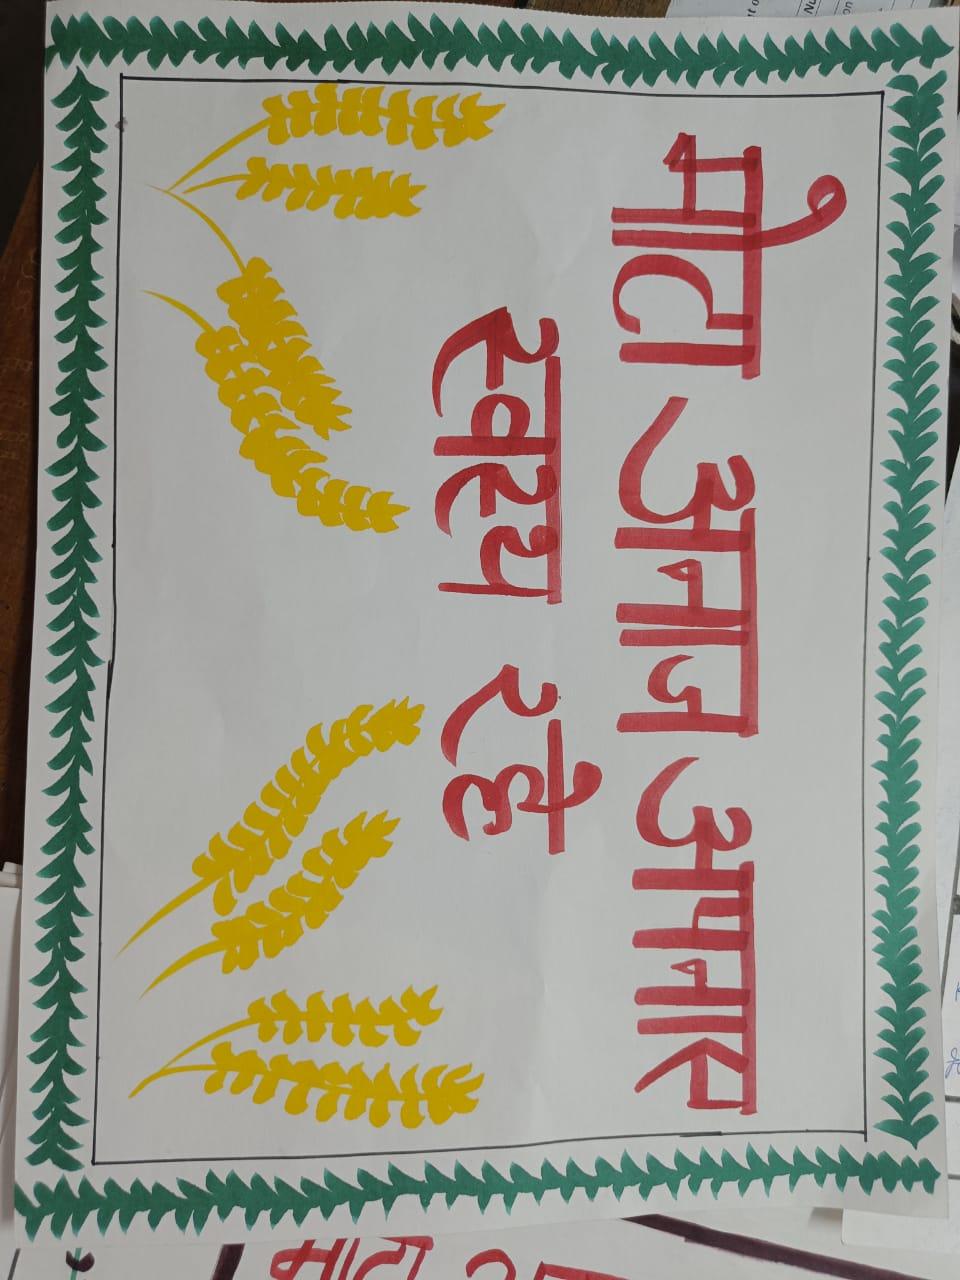 मोटा अनाज अपनाए
स्वस्थ रहे